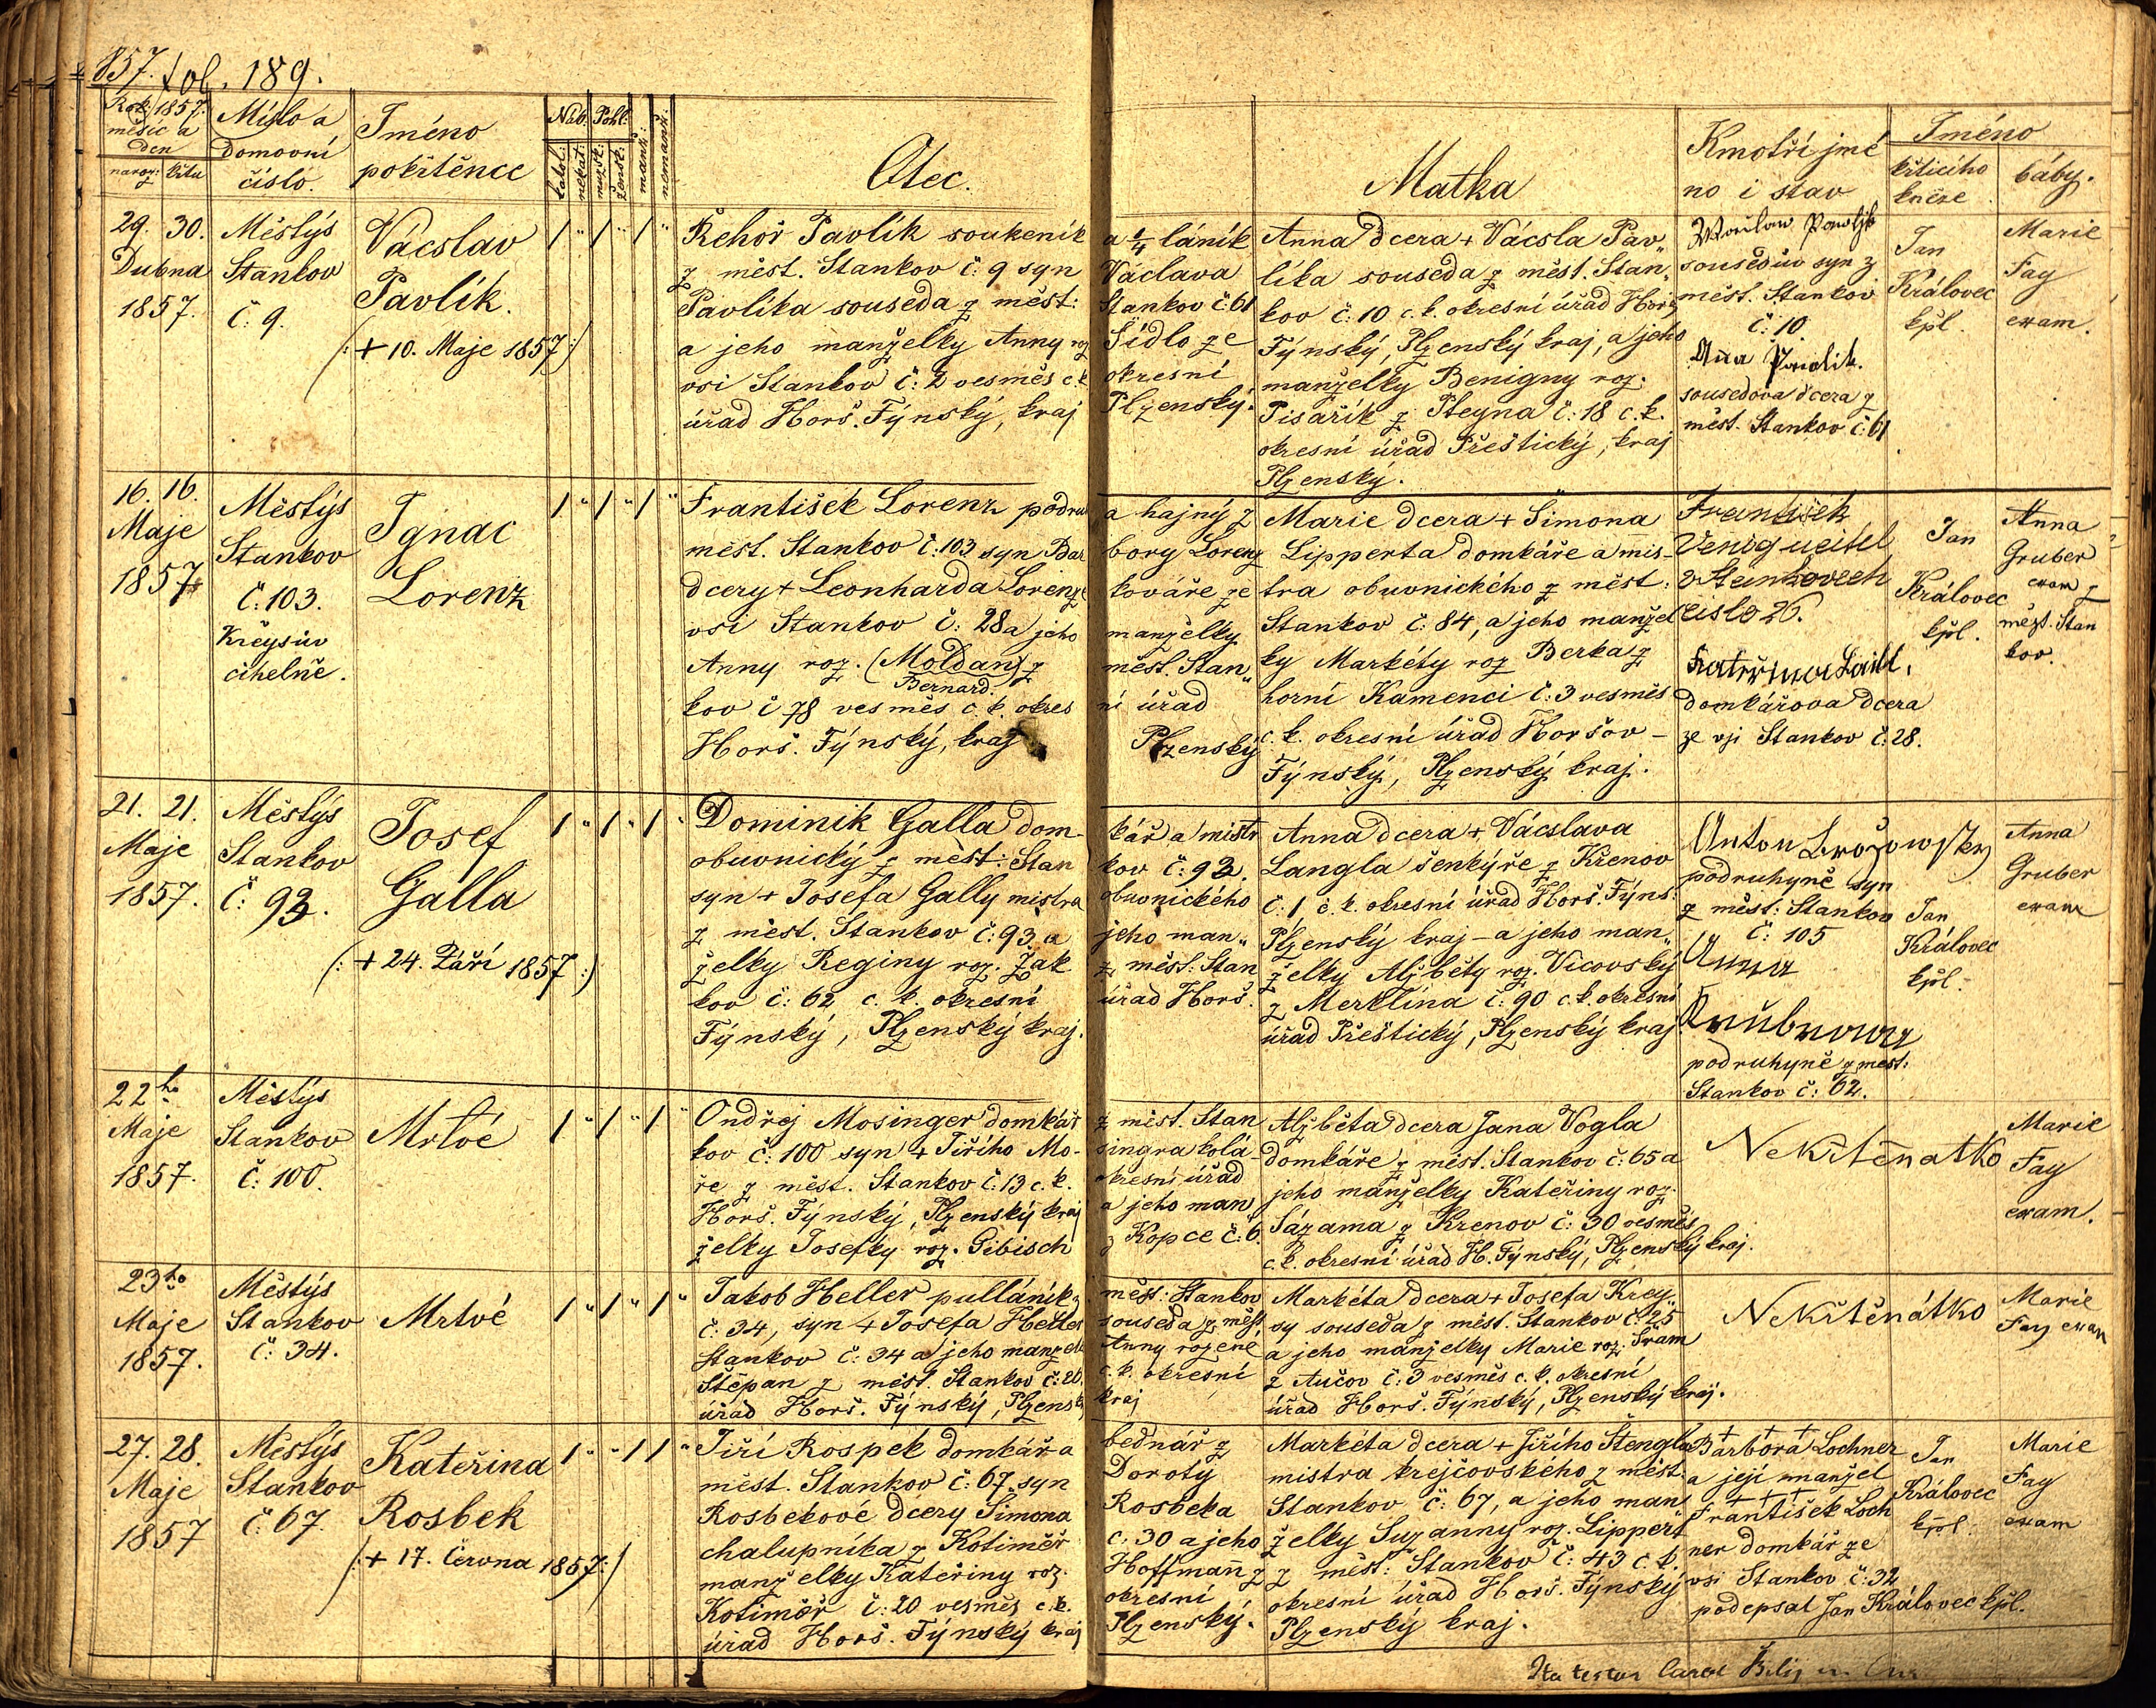 1857. fol. 189.
Rok: 1857.
měsíc a
den
naroz: křtu
Místo a
domovní
číslo.
Iméno
pokřtěnce
Náb: Pohl:
katol:
nekat:
mužsk:
žensk:
manž:
nemanž:
Otec.
Matka
Kmotři jmé
no i stav
Iméno
křticího
kněze
báby.
29. 30.
Dubna
1857.
Městýs
Stankov
č: 9.
Vácslav
Pavlík.
(:+ 10. Maje 1857:)
Řehoř Pavlík soukeník
z měst. Stankov č: 9 syn
Pavlíka souseda z měst:
a jeho manželky Anny roz
vsi Stankov č: 2 vesměs c.k.
úřad Horš. Týnský, kraj
a ¼ láník
Václava
Stankov č: 61
Šídlo ze
okresní
Plzenský.
Anna dcera + Vácsla Pav„
líka souseda z měst. Stan„
kov č: 10 c. k. okresní úřad Horš.
Týnský, Plzenský kraj, a jeho
manželky Benigny roz.
Pisařík z Pteyna č: 18 c. k.
okresní úřad Přeštický, kraj
Plzenský.
Wáclaw Pawlik
sousedův syn z
měst. Stankov
č: 10
Aňa Pawlik.
sousedova dcera z
měst. Stankov č: 61
Jan
Královec
kpl.
Marie
Fay
exam.
16. 16.
Maje
1857
Městýs
Stankov
č: 103.
Kreysův
cihelně.
Ignac
Lorenz
František Lorenz podru
měst. Stankov č: 103 syn Bar
dcery + Leonharda Lorenze
vsi Stankov č: 28 a jeho
Anny roz. (Moldan) z
Bernard.
kov č 78 vesměs c. k. okres
Horš. Týnský, kraj
a hajný z
bory Lorenz
kováře ze
manželky
měst. Stan„
ní úřad
Plzenský
Marie dcera + Šimona
Lipperta domkáře a mis-
tra obuvnického z měst:
Stankov č: 84, a jeho manžel
ky Markéty roz Berka z
horní Kamenci č: 3 vesměs
c. k. okresní úřad Horšov-
Týnský, Plzenský kraj.
František
Venig ucitel
v Stankovech
cislo 26.
Kateřina Laitl,
domkářova dcera
ze vsi Stankov č: 28.
Jan
Královec
kpl.
Anna
Gruber
exam z
měst. Stan
kov.
21. 21.
Maje
1857.
Městýs
Stankov
č: 93.
Josef
Galla
(:+ 24. Září 1857:)
Dominik Galla dom-
obuvnický z měst: Stan
syn + Josefa Gally mistra
z měst. Stankov č: 93 a
želky Reginy roz. Žak
kov č: 62 c. k. okresní
Týnský, Plzenský kraj.
kář a mistr
kov č: 93.
obuvnického
jeho man„
z měst: Stan
úřad Horš.
Anna dcera + Vácslava
Langla šenkýře z Křenov
č: 1 c. k. okresní úřad Horš. Týns:
Plzenský kraj - a jeho man„
želky Alžběty roz. Vicovský
z Merklína č: 90 c. k. okresní
úřad Přeštický, Plzenský kraj
Anton Brožowsky
podruhyně syn
z měst: Stankov
č: 105
Anna
Grubrowa
podruhyně z měst:
Stankov č: 62.
Jan
Královec
kpl.
Anna
Gruber
exam
22ho
Maje
1857.
Městýs
Stankov
č: 100.
Mrtvé
Ondřej Mosinger domkář
kov č: 100 syn + Jiřího Mo-
ře z měst. Stankov č: 13 c. k.
Horš. Týnský, Plzenský kraj
želky Josefky roz. Gibisch
z měst. Stan
singra kolá-
okresní úřad
a jeho man
z Kopce č: 6.
Alžběta dcera Jana Vogla
domkáře z měst. Stankov č: 65 a
jeho manželky Kateřiny roz.
Sázama z Křenov č: 30 vesměs
c. k. okresní úřad H. Týnský, Plzenský kraj.
Nekřtěnátko
Marie
Fay
exam.
23ho
Maje
1857.
Městýs
Stankov
č: 34.
Mrtvé
Jakob Heller pulláník z
č: 34, syn + Josefa Heller
Stankov č: 34 a jeho manžel
Štěpan z měst. Stankov č: 20.
úřad Horš. Týnský, Plzensk
měst: Stankov
souseda z měst
Anny rozené
c. k. okresní
kraj
Markéta dcera + Josefa Krey-
sy souseda z měst. Stankov č: 25
a jeho manželky Marie roz. Šram
z Aučov č: 3 vesměs c. k. okresní
úřad Horš. Týnský, Plzenský kraj.
Nekřtěnátko
Marie
Fay exam
27. 28.
Maje
1857
Městýs
Stankov
č: 67.
Kateřina
Rosbek
(:+ 17. Června 1857:)
Jiří Rospek domkář a
měst. Stankov č: 67. syn
Rosbekové dcery Simona
chalupníka z Kotiměř
manželky Kateřiny roz.
Kotiměř č: 20 vesměs c. k.
úřad Horš. Týnský kraj
bednář z
Doroty
Rosbeka
č. 30 a jeho
Hoffmann z
okresní
Plzenský.
Markéta dcera + Jiřího Štengla
mistra krejčovského z měst.
Stankov č: 67, a jeho man
želky Suzanny roz. Lippert
z měst: Stankov č: 43 c. k.
okresní úřad Horš. Týnský
Plzenský kraj.
+ + +
Barbora Lochner
a její manžel
+ + +
František Loch
ner domkář ze
vsi Stankov č: 32
podepsal Jan Královec kpl.
Jan
Královec
kpl.
Marie
Fay
exam
Ita testor Carol